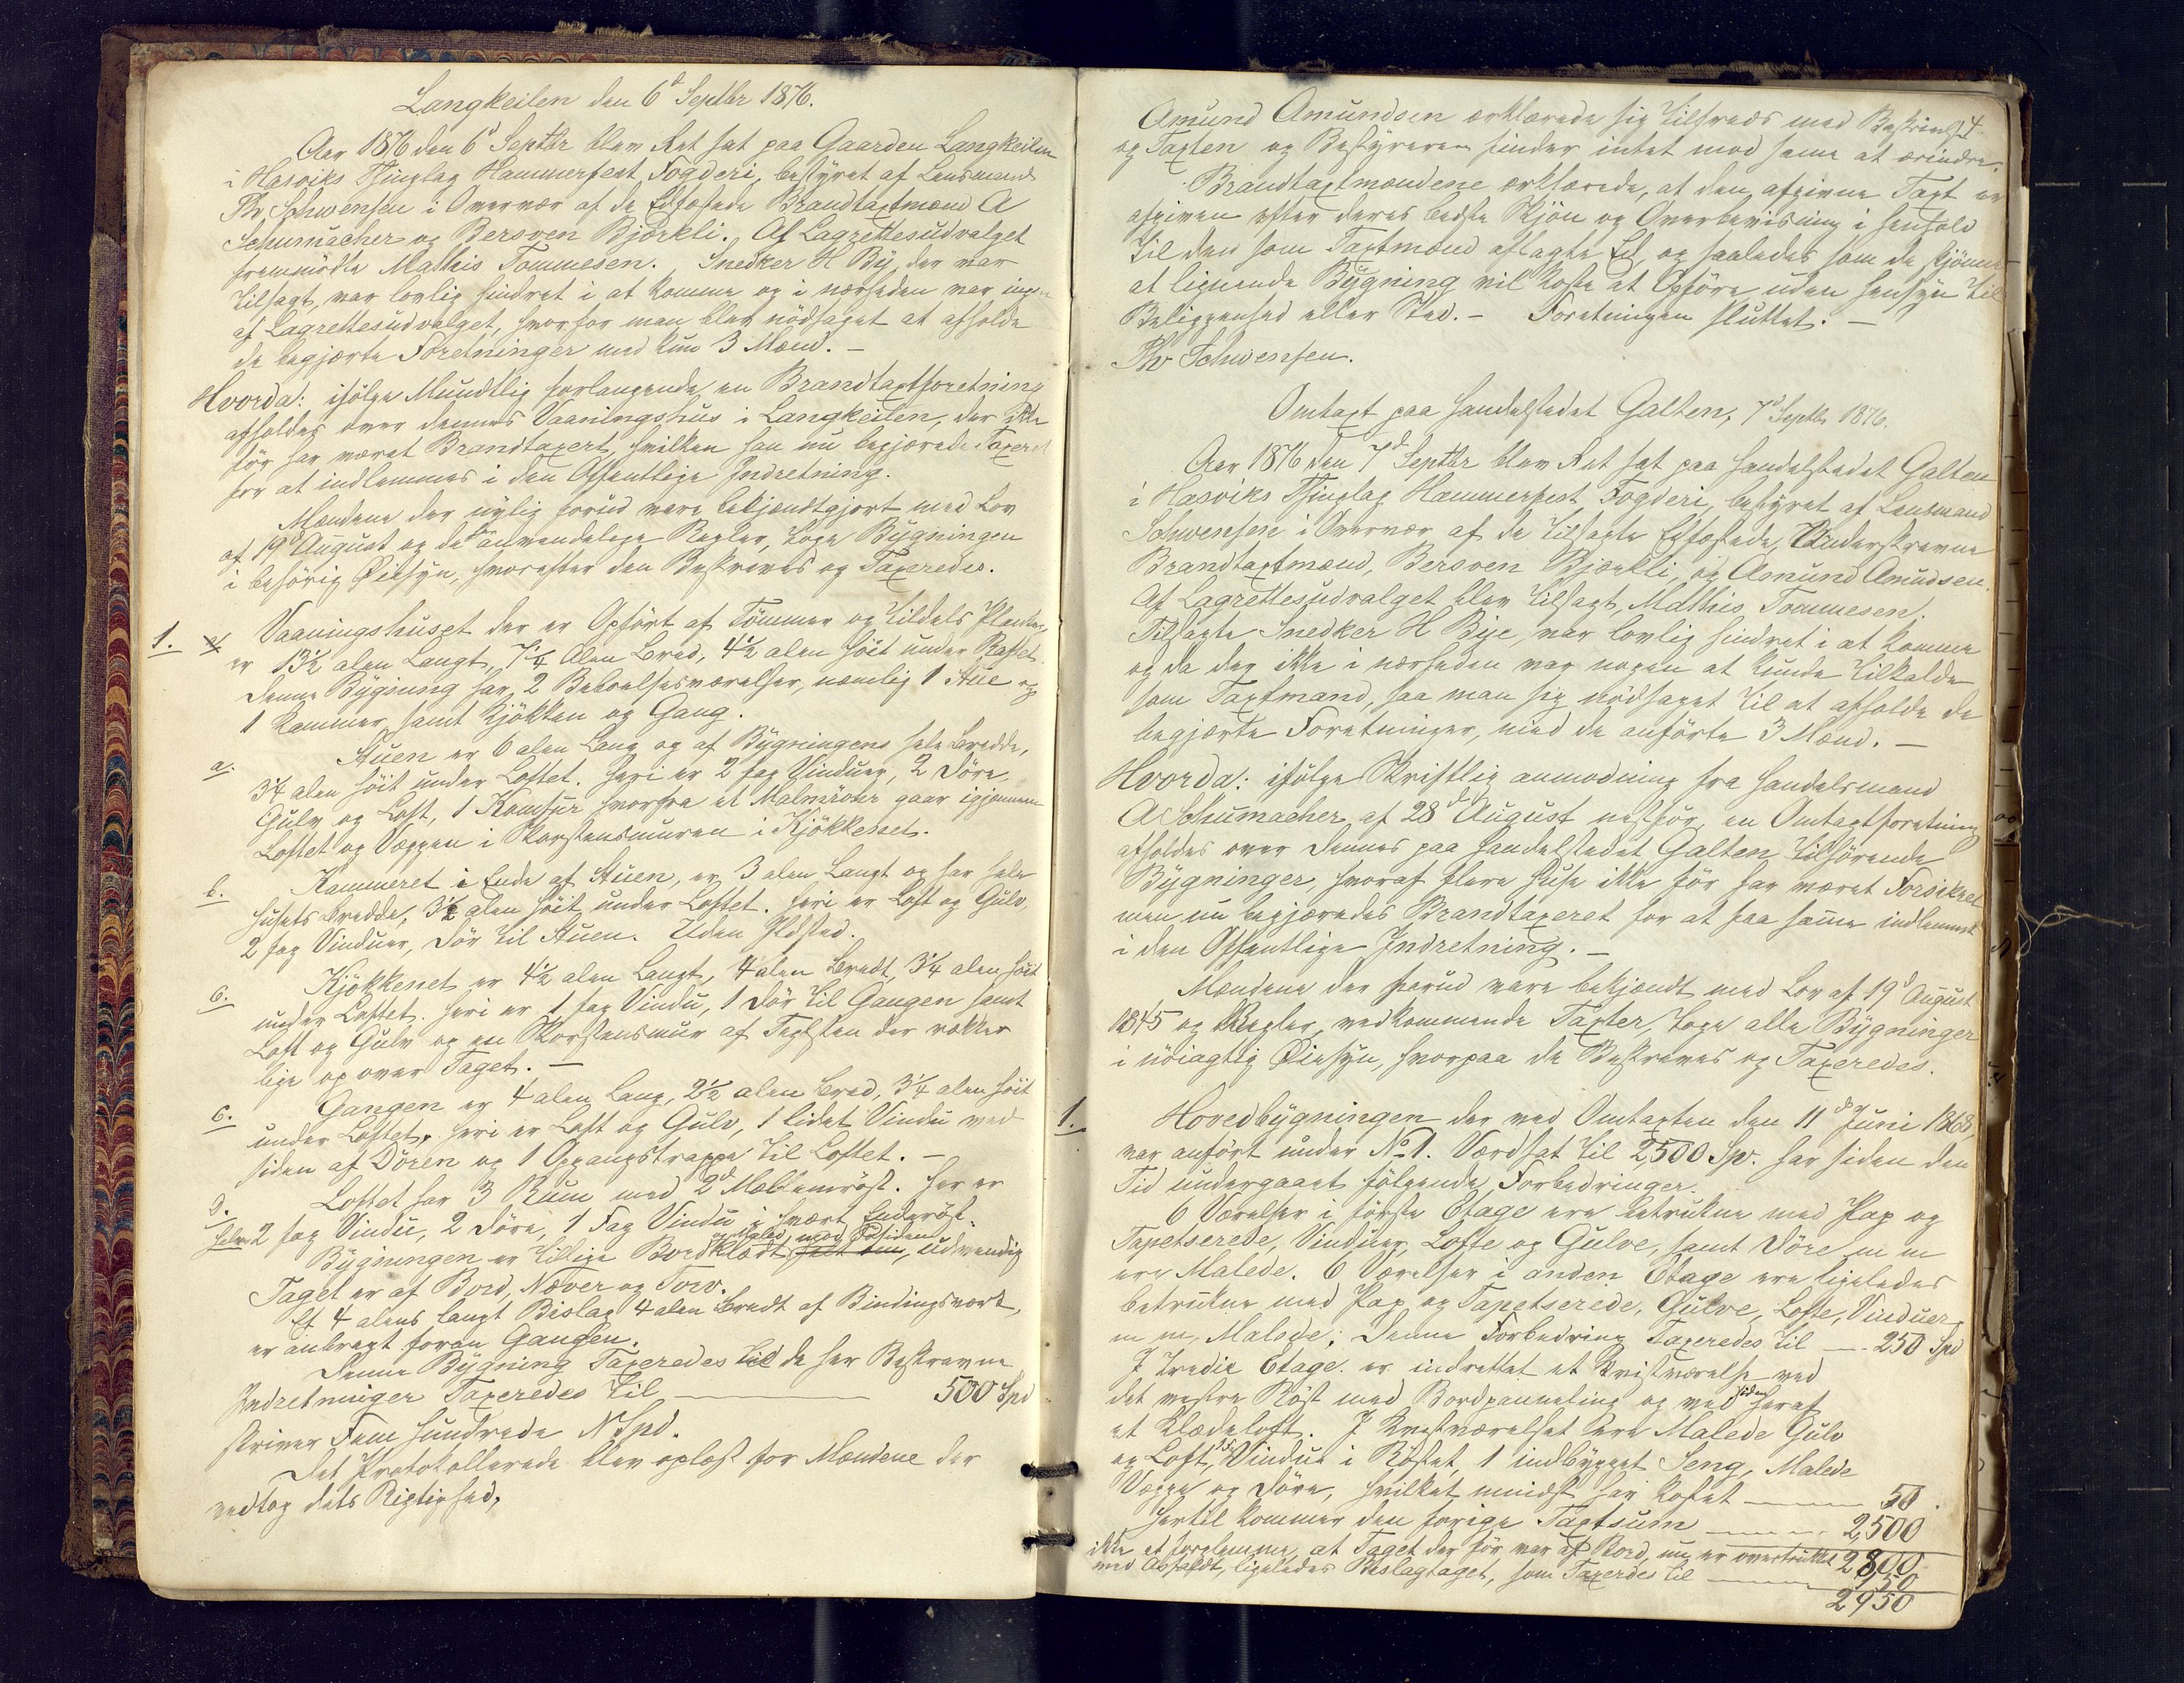 Langkeilen den 6t Septbr 1876.
Aar 1876 den 6d Septbr blev Ret sat paa Gaarden Langkeilen
i Hasviks Thinglag Hammerfest Fogderi, bestyret af Lensmand
Th. Schwensen i Overvær af de Edfæstede Brandtaxtmænd A
Schumacher og Bersven Bjørkli. Af Lagrettesudvalget
fremmødte Mathis Tommesen. Snedker H By, der var
tilsagt, var lovlig hindret i at komme og i nærheden var ingen
af Lagrettesudvalget, hvorfor man blev nödsaget at afholde
de begjærte Foretninger med kun 3 Mænd. —
Hvorda: ifölge Mundtlig forlangende en Brandtaxtforetning
afholdes over dennes Vaaningshus i Langkeilen, der ikke
för har været Brandtaxert, hvilken han nu begjærede Taxeret
for at indlemmes i den Offentlige Indretning.
Mændene der nylig forud vare bekjendtgjort med Lov
af 19d August og de anvendelige Regler, toge Bygningen
i behörig Öiesyn, hvorefter den Beskreves og Taxeredes.
1. Vaaningshuset der er Opfört af Tömmer og tildels Planker,
er 13½ alen Langt, 7¼ Alen Bred, 4½ alen höit under Raftet.
Denne Bygning har 2 Beboelsesværelser, nemlig 1 Stue og
1 Kammer samt Kjökken og Gang.
a. Stuen er 6 alen Lang og af Bygningens hele Bredde,
3¼ alen höit under Loftet. Heri er 2 fag Vinduer, 2 Döre,
Gulv og Loft, 1 Komfur hvorfra et Malmrör gaar igjennem
Loftet og Væggen i Skorstensmuren i Kjökkenet.
b. Kammeret i Ende af Stuen, er 3 alen Langt og har hele
husets Bredde, 3½ alen höit under Loftet. Heri er Loft og Gulv,
2 fag Vinduer, Dör til Stuen. Uden Ildsted.
c. Kjøkkenet er 4½ alen Langt, 4 alen Bredt, 3¼ alen höit
under Loftet. Heri er 1 fag Vindu, 1 Dör til Gangen samt
Loft og Gulv og en Skorstensmur af Teglsten der rækker
lige op over Taget. —
c. Gangen er 4 alen Lang, 2½ alen Bred, 3¼ alen höit
under Loftet, heri er Loft og Gulv, 1 lidet Vindu ved
siden af Dören og 1 Opgangstrappe til Loftet. —
d. Loftet har 3 Rum med 2d Mellemröst. Her er
halve 2 fag Vindu, 2 Döre, 1 Fag Vindu i hvert Enderöst.
Bygningen er tillige Bordklædt, udvendig
Taget er af Bord, Næver og Torv.
Et 4 alens langt Bislag 4 alen Bredt af Bindingsverk,
er anbragt foran Gangen.
Denne Bygning Taxeredes til de her Beskrevne
Indretninger Taxeredes til ——— 500 Spd
skriver Fem hundrede N Spd.
Det Protokollerede blev oplæst for Mændene der
vedtog dets Rigtighed,
4
Amund Amundsen erklærede sig tilfreds med Beskrivelse
og Taxten og Bestyreren finder intet mod same at erindre.
Brandtaxtmændene erklærede, at den afgivne Taxt er
afgiven efter deres bedste Skjön og Overbevisning i henhold
til den som Taxtmænd aflagte Ed, og saaledes som de skjönne
at lignende Bygning vil koste at Opföre uden hensyn til
Beliggenhed eller Sted. — Foretningen sluttet. —
Th Schwensen.
Omtaxt paa Handelstedet Galten, 7d Septbr 1876.
Aar 1876 den 7d Septbr blev Ret sat paa Handelstedet Galten
i Hasviks Thinglag Hammerfest Fogderi, bestyret af Lensmand
Schwensen i Overvær af de tilsagte Edfæstede, Underskrevne
Brandtaxtmænd, Bersven Bjørkli, og Amund Amudsen.
Af Lagrettesudvalget blev tilsagt, Mathis Tommesen.
Tilsagte Snedker H Bye, var lovlig hindret i at komme
og da der ikke i nærheden var nogen at kunde tilkalde
som Taxtmand, saa man sig nödsaget til at afholde de
begjærte Foretninger, med de anförte 3 Mænd. —
Hvorda: ifölge Skriftlig anmodning fra Handelsmand
A Schumacher af 28d August nestfør, en Omtaxtforetning
afholdes over dennes paa Handelstedet Galten tilhörende
Bygninger, hvoraf flere huse ikke för har været Forsikret
men nu begjæredes Brandtaxeret for at faa same indlemmet
i den Offentlige Indretning. —
Mændene der forud vare bekjendt med Lov af 19d August
1845 og Regler, vedkommende Taxter, toge alle Bygninger
i nöiagtig Öiesyn, hvorpaa de Beskreves og Taxeredes.
1. Hovedbygningen der ved Omtaxten den 11 Juni 1868,
var anfört under No 1. Værdsat til 2,500 Spd. har siden den
Tid undergaaet fölgende Forbedringer.
6 Værelser i förste Etage ere betrukne med Pap og
Tapetserede, Vinduer, Lofte og Gulve, samt Döre m m
ere Malede. 6 Værelser i anden Etage ere ligeledes
betrukne med Pap og Tapetserede, Gulve, Lofte, Vinduer
m m, Malede; denne Forbedring Taxeredes til — 250 Spd
I tredie Etage er indrettet et Kvistværelse ved
det vestre Röst med Bordpanneling og ved siden heraf
et Klædeloft. I Kvistværelset ere Malede Gulv
og Loft, Vindue i Röstet, 1 indbygget Seng, Malede
Vægge og Döre, hvilket mindst har kostet ——— 50.
Hertil kommer den forige Taxtsum ——— 2,500
ikke at forglemme, at Taget der för var af Bord, nu er overtrukket 2800
med Asfaldt, ligeledes Bislagtaget, som Taxerdes til ——— 150
2950